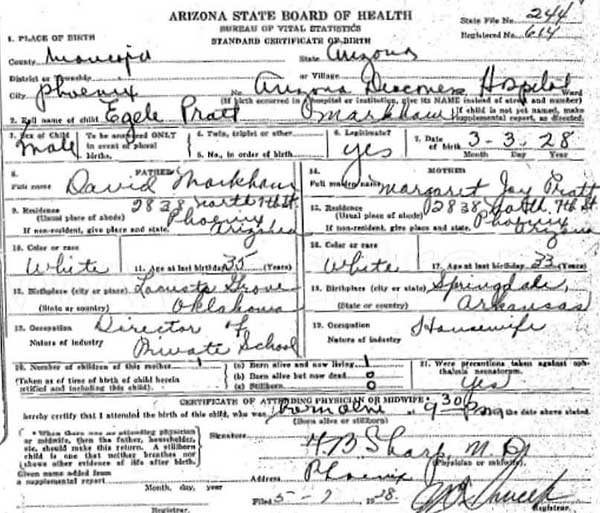 ARIZONA STATE BOARD OF HEALTH
BUREAU OF VITAL STATISTICS
STANDARD CERTIFICATE OF BIRTH
State File No. 244
Registered No. 614
1. PLACE OF BIRTH
County Maricopa State Arizona
District or Township or Village
City Phoenix No. Arizona Deaconess Hospital Ward
(If birth occurred in a hospital or institution, give its NAME instead of street and number)
2. Full name of child Pratt Markham
If child is not yet named, make supplemental report, as directed.
3. Sex of Child Male
To be answered ONLY in event of plural births.
4. Twin, triplet or other
5. No., in order of birth
6. Legitimate? yes
7. Date of birth 3-3-28
Month Day Year
8. FATHER
Full name David Markham
9. Residence 2838 North 7th St.
(Usual place of abode) Phoenix
If non-resident, give place and state. Arizona
10. Color or race
White
11. Age at last birthday 35 (Years)
12. Birthplace (city or place) Locust Grove
(State or country) Oklahoma
13. Occupation Director of
Nature of industry Private School
14. MOTHER
Full maiden name Margaret Jay Pratt
15. Residence 2838 North 7th St.
(Usual place of abode) Phoenix
If non-resident, give place and state. Arizona
16. Color or race
White
17. Age at last birthday 33 (Years)
18. Birthplace (city or state) Springdale,
(State or country) Arkansas
19. Occupation Housewife
Nature of industry
20. Number of children of this mother 1
(Taken as of time of birth of child herein certified and including this child).
(a) Born alive and now living 1
(b) Born alive but now dead 0
(c) Stillborn 0
21. Were precautions taken against ophthalmia neonatorum.
Yes
CERTIFICATE OF ATTENDING PHYSICIAN OR MIDWIFE*
hereby certify that I attended the birth of this child, who was Born alive at 9 30 P m on the date above stated.
(Born alive or stillborn)
* When there was no attending physician
or midwife, then the father, householder,
etc. should make this return. A stillborn
child is one that neither breathes nor
shows other evidence of life after birth.
Signature H B Sharp, M. D.
(Physician or midwife).
Given name added from
a supplemental report
Month, day, year
Registrar.
Address Phoenix
Filed 5-7 1928
Registrar.